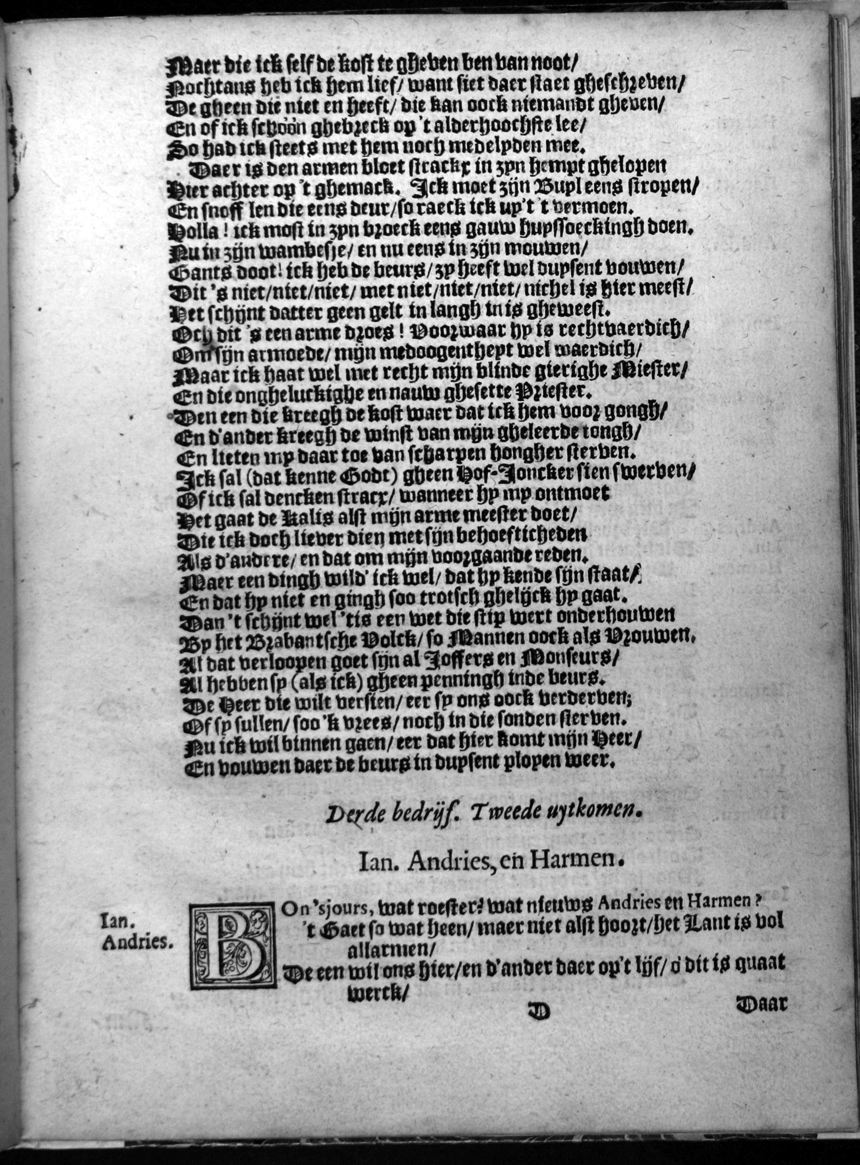 Maer die ick self de kost te gheven ben van noot/
Nochtans heb ick hem lief/ want siet daer staet gheschreven/
De gheen die niet en heeft/ die kan oock niemandt gheven/
En of ick schoon ghebreck op 't alderhoochste lee/
So had ick steets met hem noch medelyden mee.
Daer is den armen bloet strackx in zyn hempt ghelopen
Hier achter op 't ghemack. Ick moet zijn Buyl eens stropen/
En snoff'len die eens deur/ so raeck ick uyt 't vermoen.
Holla! ick most in zyn broeck eens gauw huyssoeckingh doen.
Nu in zijn wambesje/ en nu eens in zijn mouwen/
Gants doot! ick heb de beurs/ zy heeft wel duysent vouwen/
Dit 's niet/ niet/ niet/ met niet/ niet/ niet/ nichel is hier meest/
Het schijnt datter geen gelt in langh in is gheweest.
Och dit 's een arme droes! Voorwaar hy is rechtvaerdich/
Om sijn armoede/ mijn medoogentheyt wel waerdich/
Maar ick haat wel met recht mijn blinde gierighe Miester/
En die ongheluckighe en nauw ghesette Priester.
Den een die kreegh de kost waer dat ick hem voor gongh/
En d'ander kreegh de winst van mijn gheleerde tongh/
En lieten my daar toe van scharpen hongher sterven.
Ick sal (dat kenne Godt) gheen Hof-Joncker sien swerven/
Of ick sal dencken stracx/ wanneer hy my ontmoet
Het gaat de Kalis alst mijn arme meester doet/
Die ick doch liever dien met sijn behoefticheden
Als d'andere/ en dat om mijn voorgaande reden.
Maer een dingh wild' ick wel/ dat hy kende sijn staat/
En dat hy niet en gingh soo trotsch ghelijck hy gaat.
Dan 't schijnt wel 'tis een wet die stip wert onderhouwen
By het Brabantsche Volck/ so Mannen oock als Vrouwen.
Al dat verloopen goet sijn al Joffers en Monseurs/
Al hebben sy (als ick) gheen penningh inde beurs.
De Heer die wilt versien/ eer sy ons oock verderven;
Of sy sullen/ soo 'k vrees/ noch in die sonden sterven.
Nu ick wil binnen gaen/ eer dat hier komt mijn Heer/
En vouwen daer de beurs in duysent ployen weer.
Derde bedrijf. Tweede uytkomen.
Ian. Andries, en Harmen.
Ian. BOn'sjours, wat roester? wat nieuws Andries en Harmen?
Andries. 't Gaet so wat heen/ maer niet alst hoort/ het Lant is vol
allarmen/
De een wil ons hier/ en d'ander daer op't lijf/ ô dit is quaat
werck/
D Daar